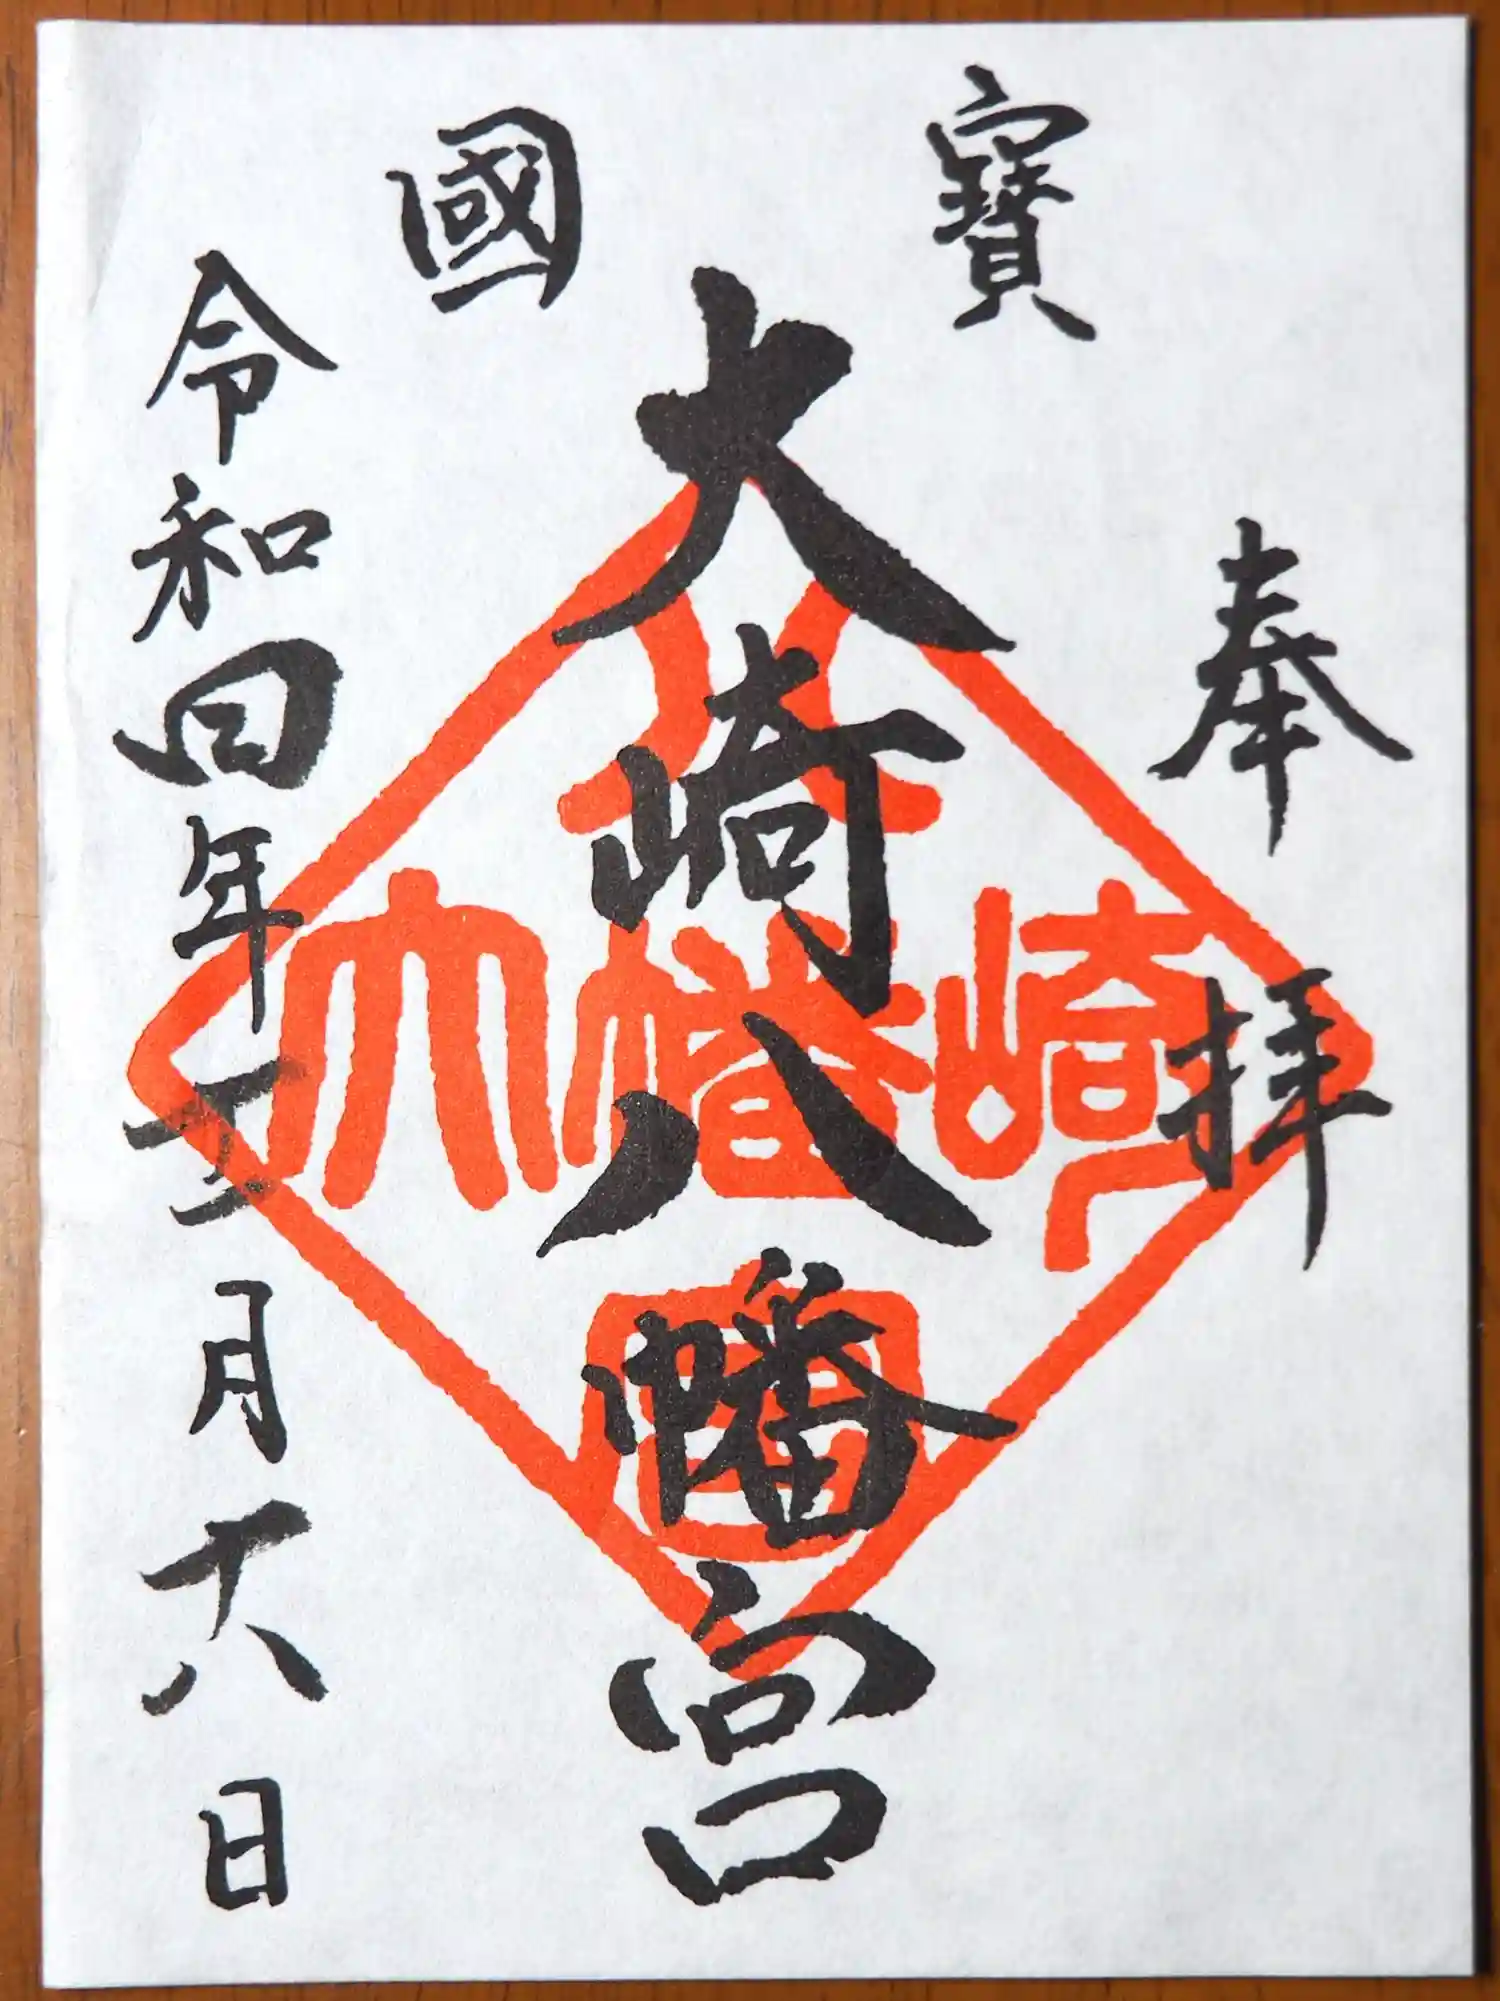 奉拝
寶
大崎八幡宮
國
令和四年十二月十八日
大崎八幡宮